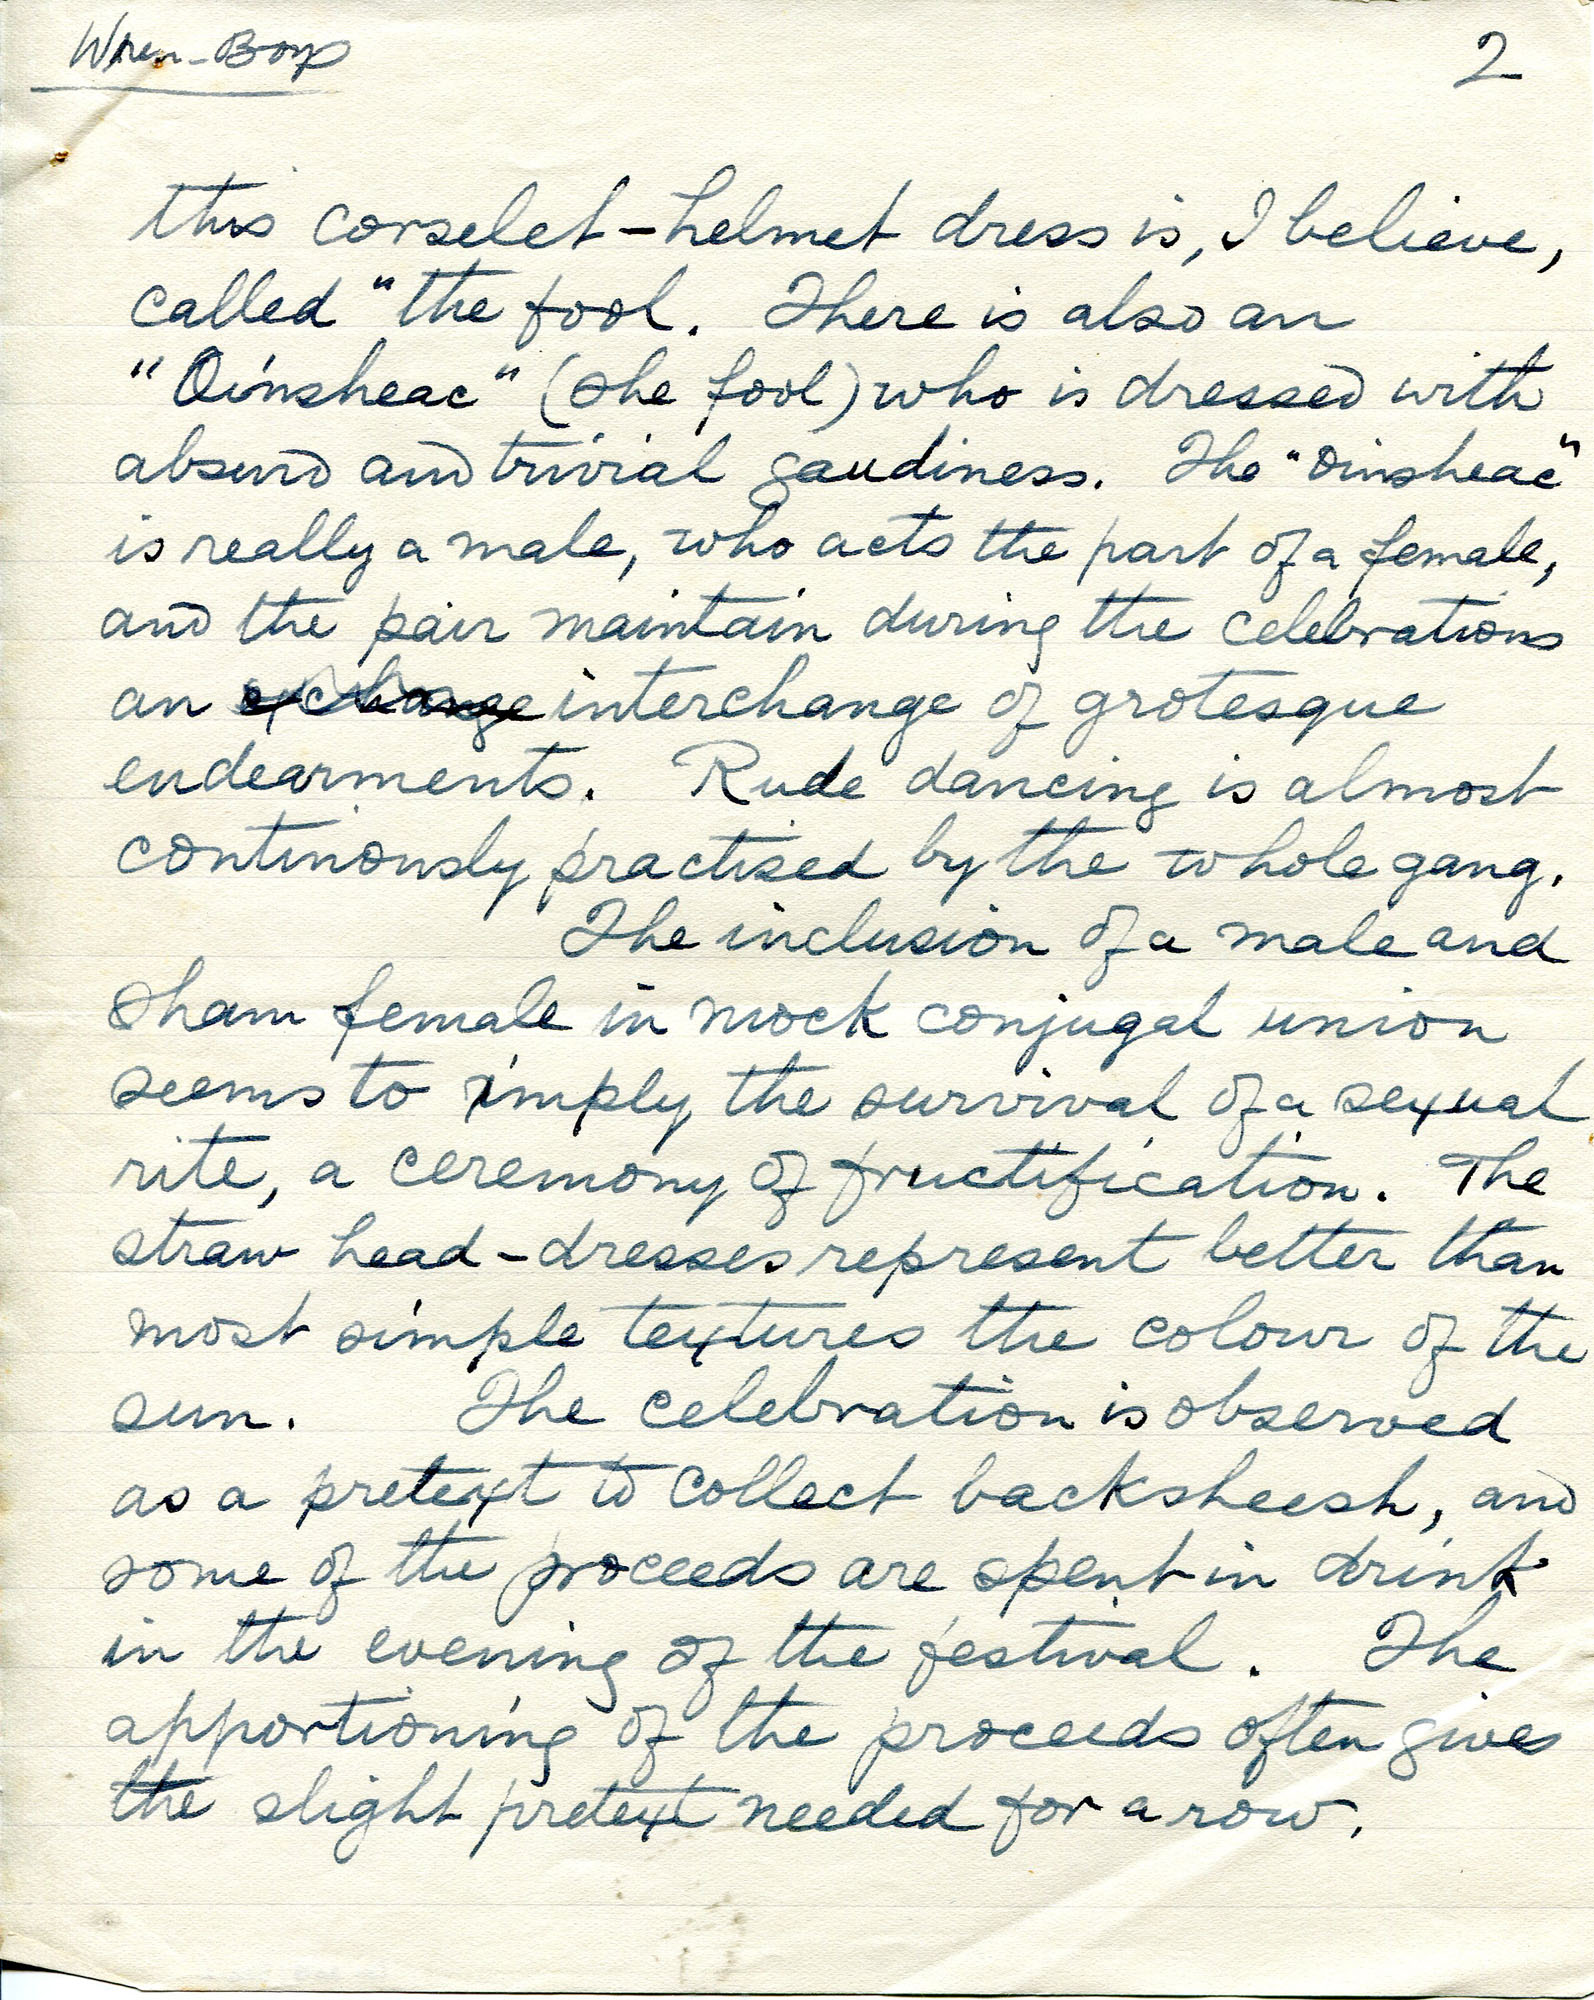 Wren-Boys
2
this corselet-helmet dress is, I believe,
called "the fool. There is also an
"Oinsheac" (she fool) who is dressed with
absurd and trivial gaudiness. The "Oinsheac"
is really a male, who acts the part of a female,
and the pair maintain during the celebrations
an exchange interchange of grotesque
endearments. Rude dancing is almost
continously practised by the whole gang.
The inclusion of a male and
sham female in mock conjugal union
seems to imply the survival of a sexual
rite, a ceremony of fructification. The
straw head-dresses represent better than
most simple textures the colour of the
sun. The celebration is observed
as a pretext to collect backsheesh, and
some of the proceeds are spent in drink
in the evening of the festival. The
apportioning of the proceeds often gives
the slight pretext needed for a row.